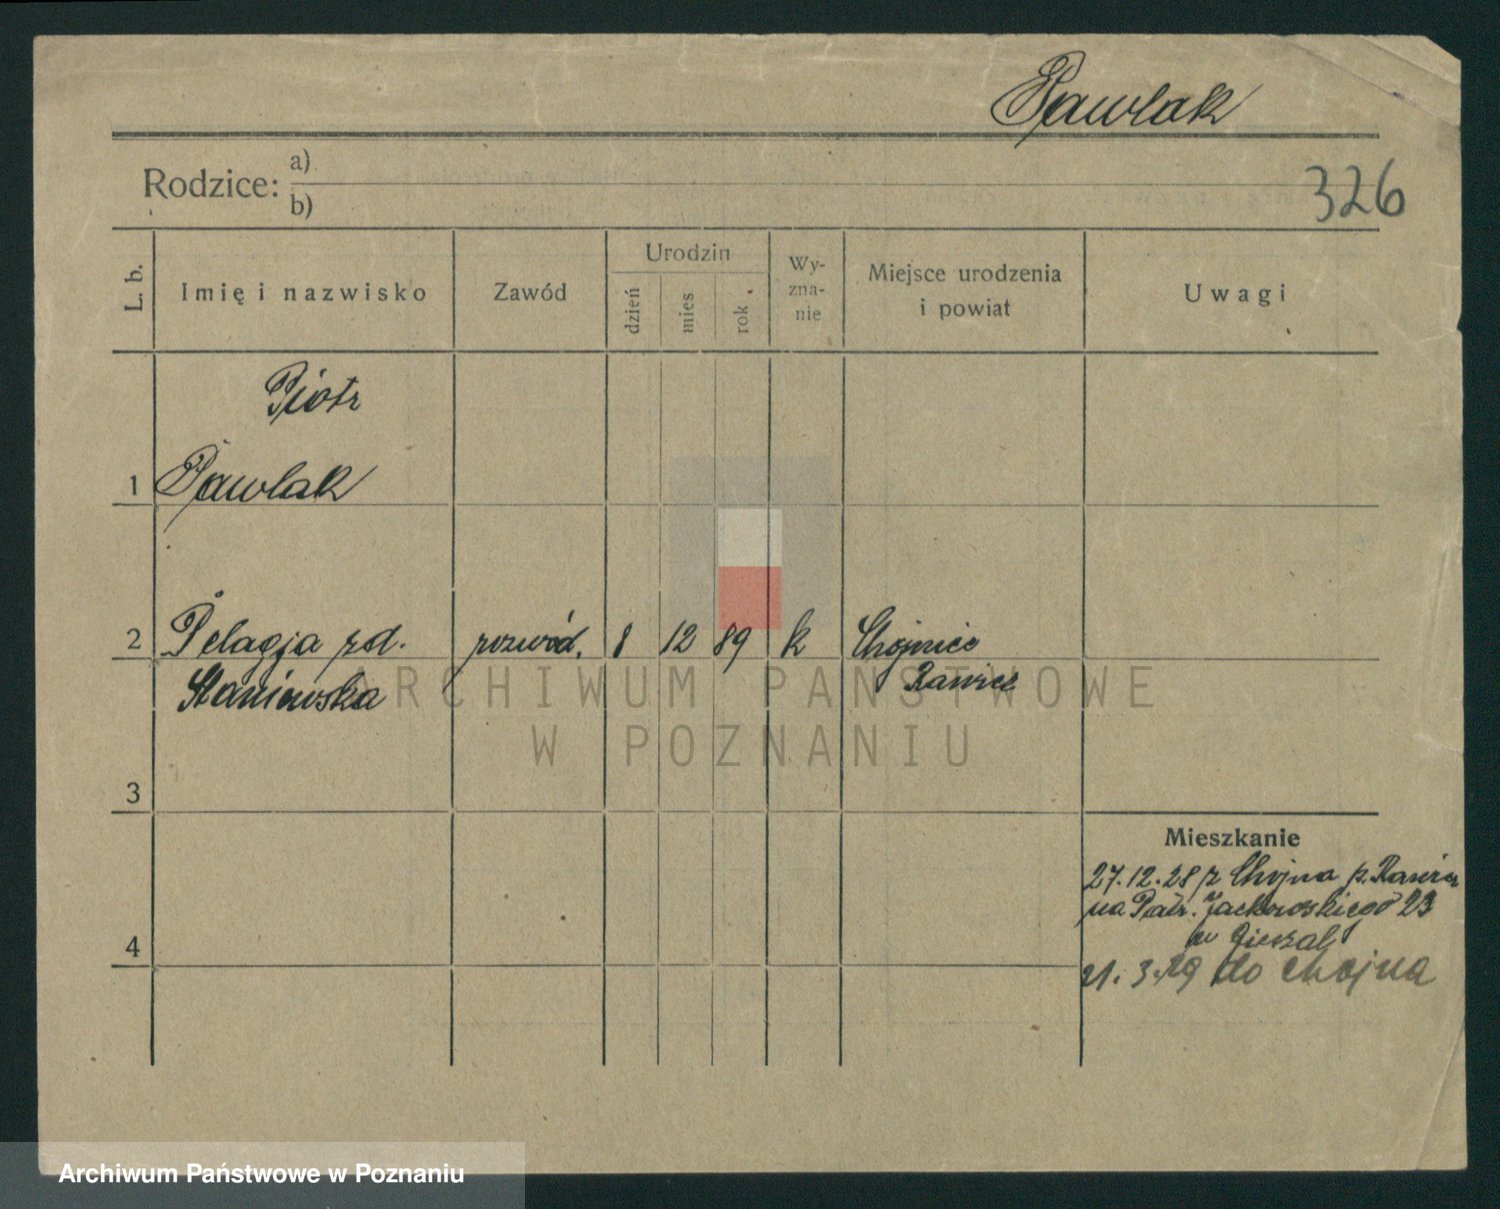 Pawlak
Rodzice: a)
b)
326
L. b.
Imię i nazwisko
Zawód
Urodzin
dzień
mies
rok
Wy-
zna-
nie
Miejsce urodzenia
i powiat
Uwagi
Piotr
1 Pawlak
2 Pelagja rd. rozwód. 8 12 89 k Chojnice
Staniewska Rawicz
ARCHIWUM PAŃSTWOWE
W POZNANIU
3
Mieszkanie
27.12.28 z Chojna p. Rawicz
na Patr. Jackowskiego 23
4
21.3.29 do Chojna
Archiwum Państwowe w Poznaniu